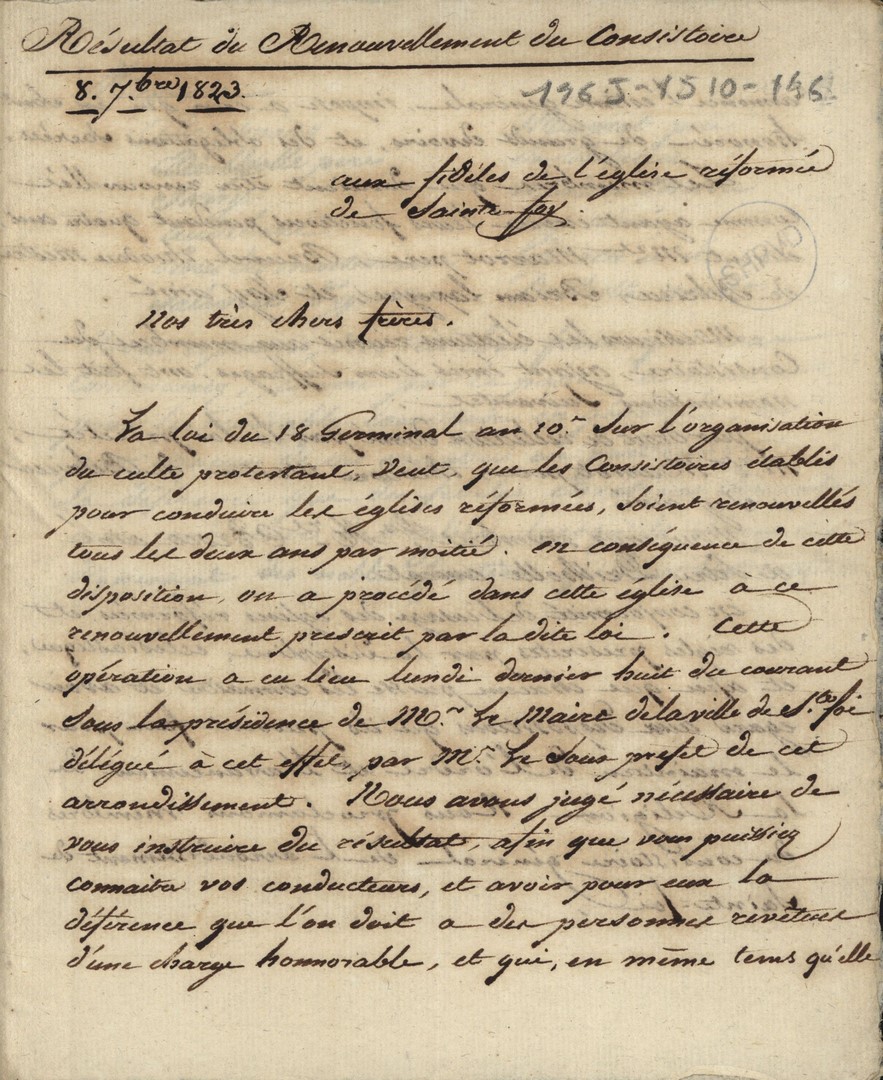 Résultat du Renouvellement du Consistoire
8. 7.bre 1823.
196J-1510-146
aux fidéles de l'église réformée
de Sainte foy.
Nos très chers frères.
La loi du 18 Germinal an 10.e Sur l'organisation
du culte protestant, Veut, que les Consistoires établis
pour conduire les églises réformées, Soient renouvellés
tous les deux ans par moitié. en conséquence de cette
disposition, on a procédé dans cette église à ce
renouvellement prescrit par la dite loi. Cette
opération a eu lieu lundi dernier huit du courant
Sous la présidence de M.r Le Maire de la ville de S.te foi
délégué à cet effet, par M.r Le Sous prefet de cet
arrondissement. Nous avons jugé nécessaire de
vous instruire du résultat, afin que vous puissiez
connaitre vos conducteurs, et avoir pour eux la
déférence que l'on doit a des personnes revêtues
d'une charge honnorable, et qui, en même tems qu'elle